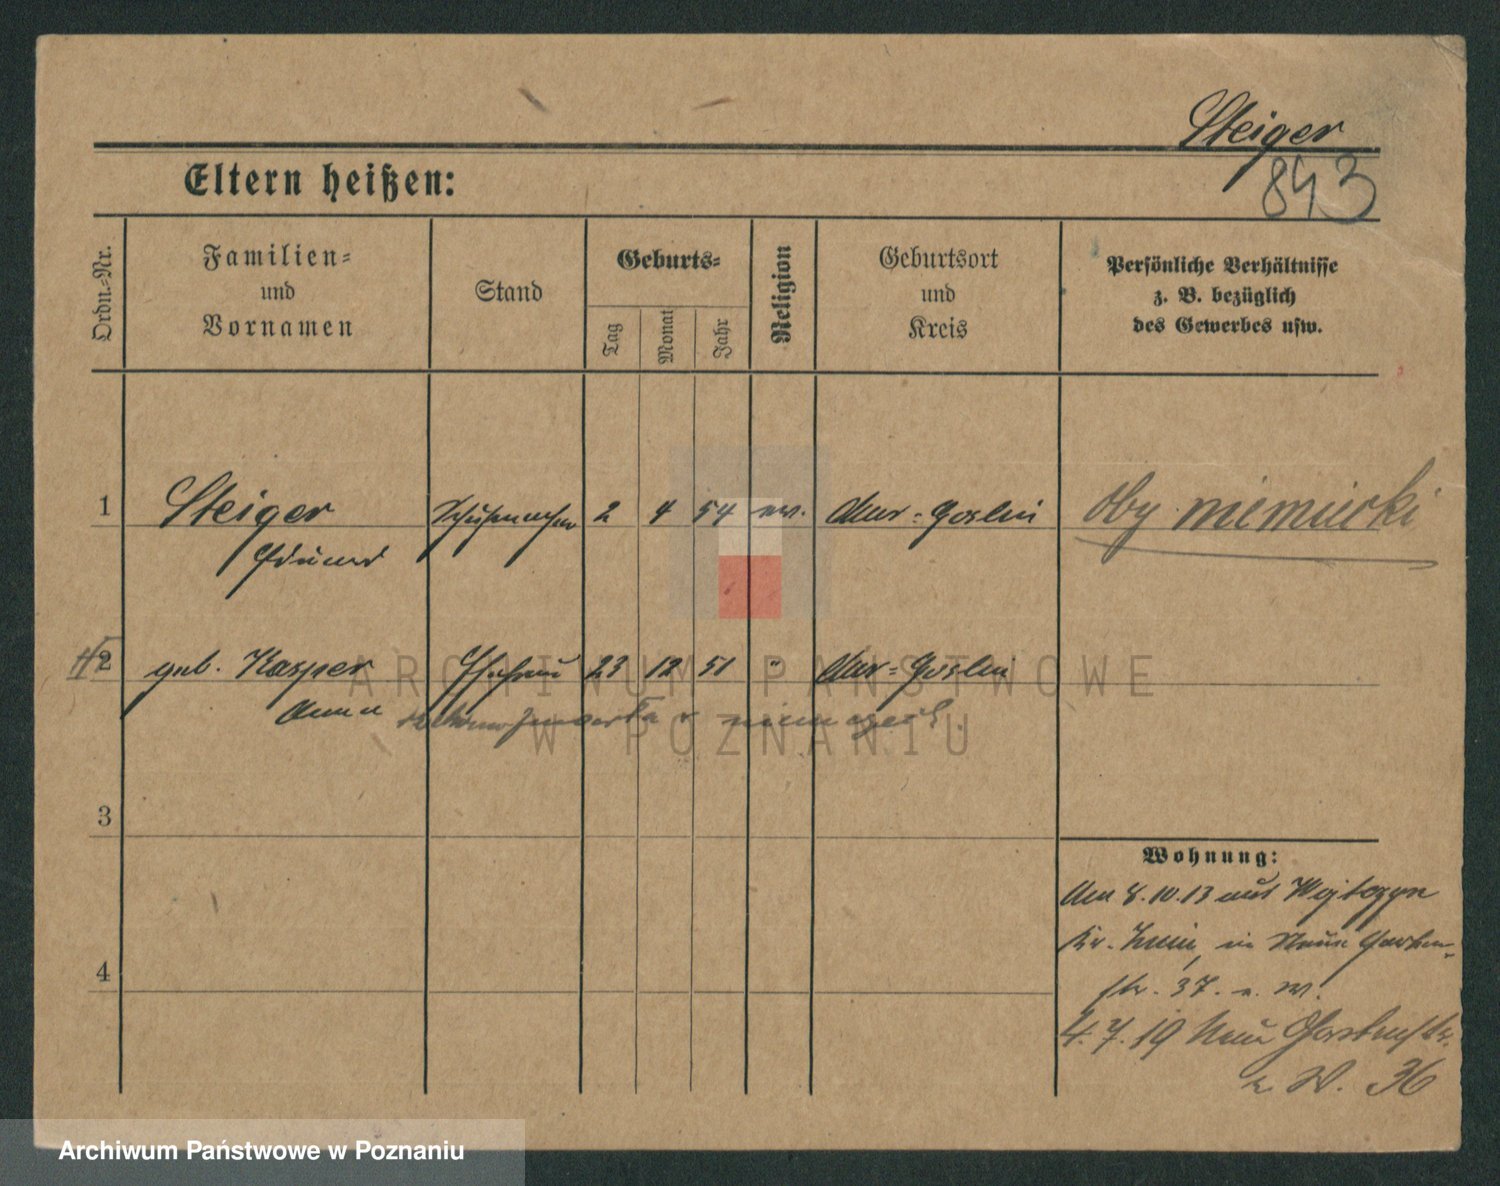 Steiger
843
Eltern heißen:
Ordn.-Nr.
Familien-
und
Vornamen
Stand
Geburts-
Tag
Monat
Jahr
Religion
Geburtsort
und
Kreis
Persönliche Verhältnisse
z. B. bezüglich
des Gewerbes usw.
1 Steiger 2 4 54 ev. Mur-Goslin
Eduard
oby niemiecki
2 geb. Kasper Ehefrau 23 12 51 " Mur-Goslin
Anna
3
4
Wohnung:
Am 8.10.13 aus Wojtczyn
Kr. Znin, in Neue Garten-
str. 37.
4.7.19 Neue Gartenstr.
36
ARCHIWUM PAŃSTWOWE
W POZNANIU
Archiwum Państwowe w Poznaniu